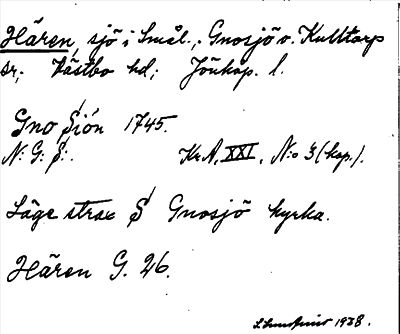 Hären, sjö i Smål., Gnosjö o. Kulltorp
sr; Västbo hd; Jönköp. l.
Gno Siön 1745.
N: G: S:. Kr A, XXI, N:o 3 (kop.).
Läge strax S Gnosjö kyrka.
Hären G. 26.
1938.